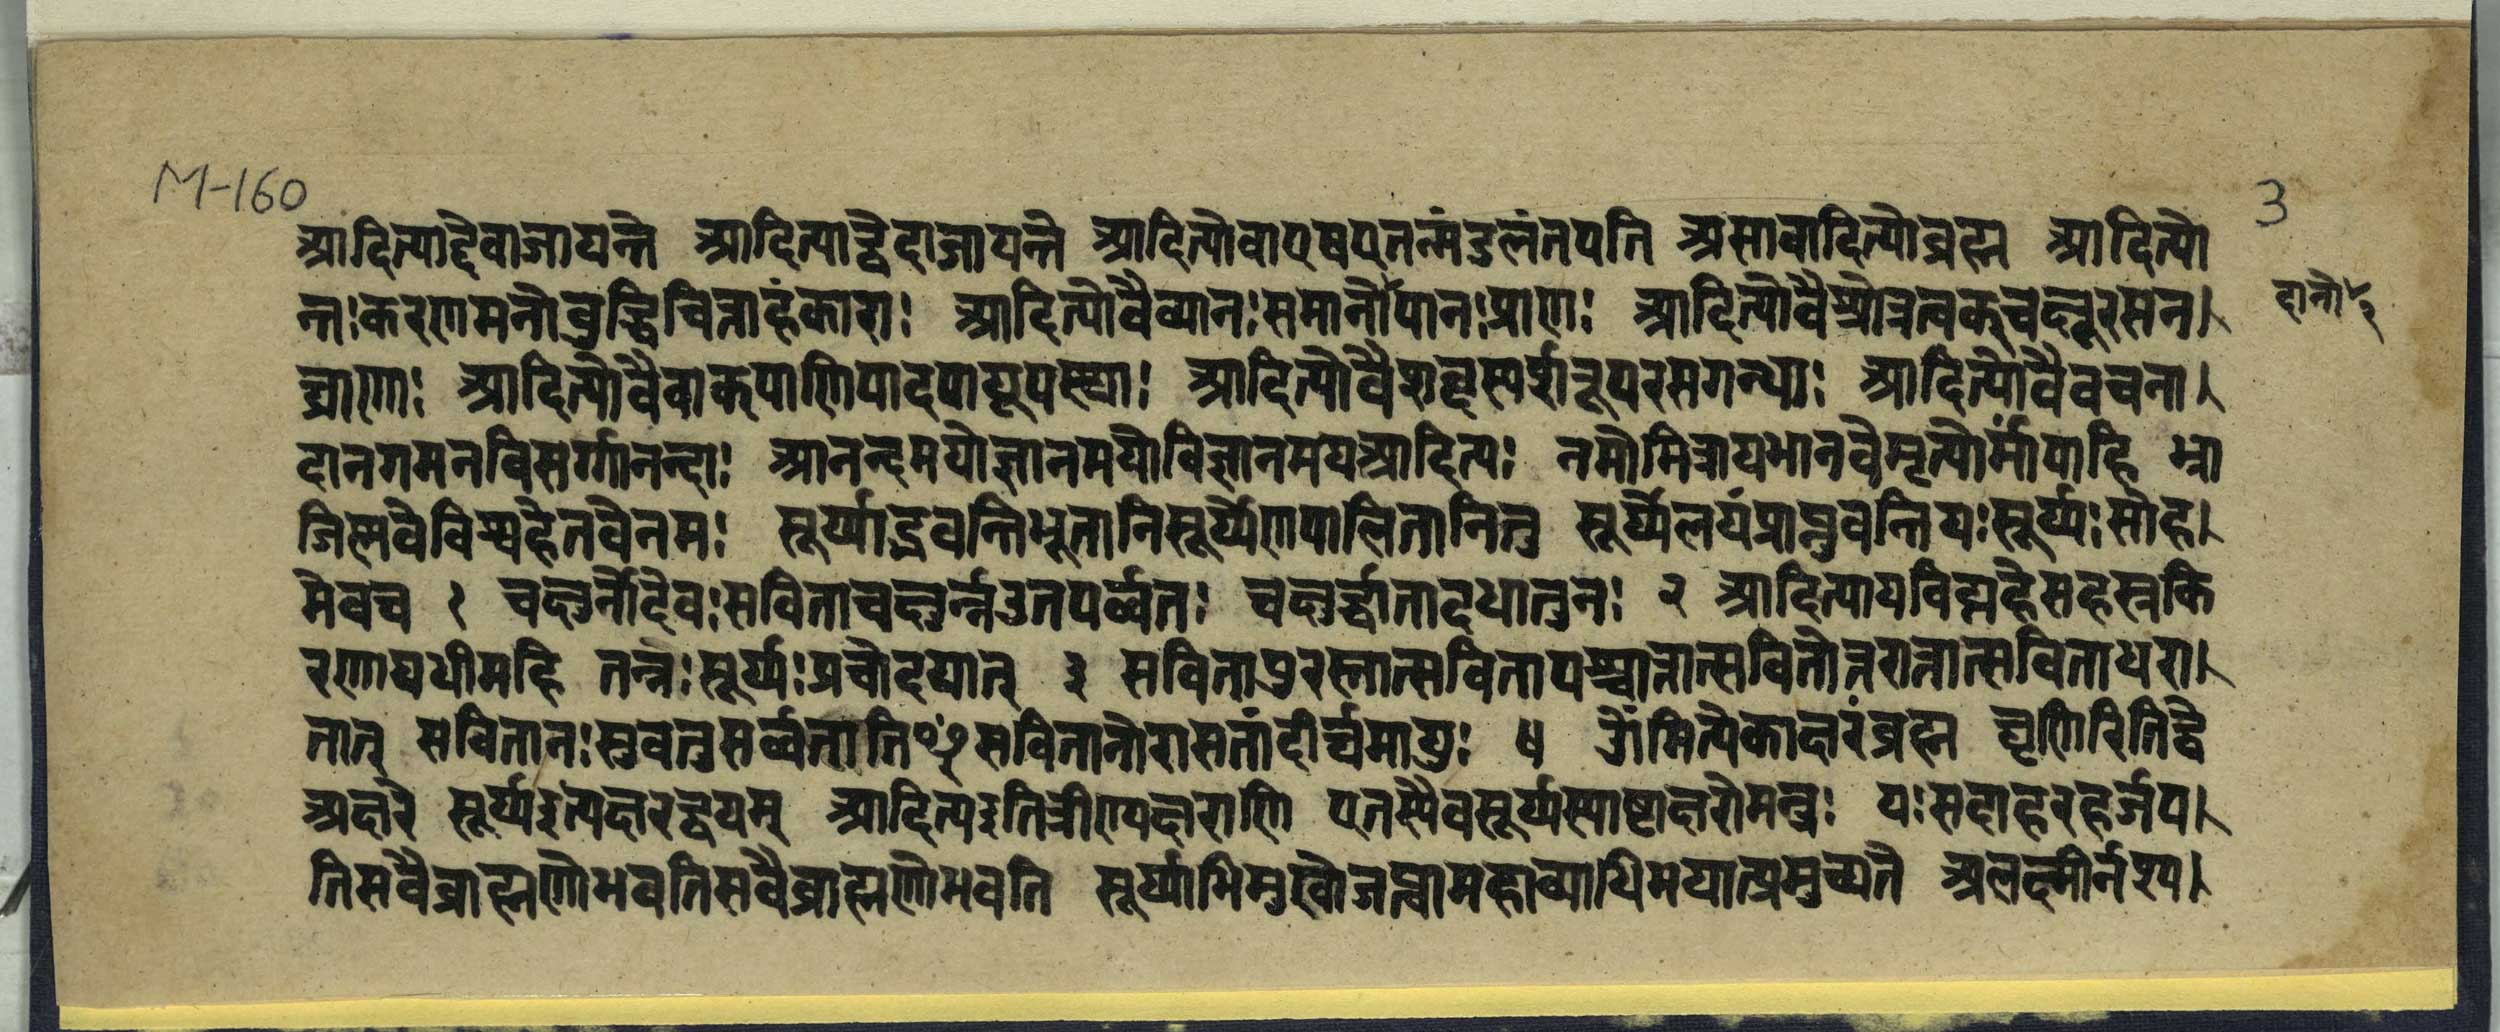 M-160
3
आदित्याद्देवाजायन्ते आदित्याद्वेदाजायन्ते आदित्योवाएषएतन्मंडलंतपति असावादित्योब्रह्म आदित्यो
न्तःकरणमनोबुद्धिचित्ताहंकाराः आदित्योवैव्यानःसमानोपानःप्राणः आदित्योवैश्रोत्रत्वक्चक्षूरसन।
दानो
घ्राणाः आदित्योवैवाक्पाणिपादपायूपस्थाः आदित्योवैशब्दस्पर्शरूपरसगन्धाः आदित्योवैवचना।
दानगमनविसर्ग्गानन्दाः आनन्दमयोज्ञानमयोविज्ञानमयआदित्यः नमोमित्रायभानवेमृत्योर्मांपाहि भ्रा
जिष्णवेविश्वहेतवेनमः सूर्य्याद्भवन्तिभूतानिसूर्य्येणपालितानितु सूर्य्येलयंप्राप्नुवन्तियःसूर्य्यःसोह।
मेवच १ चक्षुर्नोदेवःसविताचक्षुर्न्नउतपर्व्वतः चक्षुर्द्धातादधातुनः २ आदित्यायविद्महेसहस्रकि
रणायधीमहि तन्नःसूर्य्यःप्रचोदयात् ३ सवितापुरस्तात्सवितापश्चात्तात्सवितोत्तरात्तात्सविताधरा।
त्तात् सवितानःसुवतुसर्व्वतातिꣳसवितानोरासतांदीर्घमायुः ४ ॐमित्येकाक्षरंब्रह्म घृणिरितिद्वे
अक्षरे सूर्य्यइत्यक्षरद्वयम् आदित्यइतित्रीण्यक्षराणि एतस्यैवसूर्य्यस्याष्टाक्षरोमन्त्रः यःसदाहरहर्जप।
तिसवैब्राह्मणोभवतिसवैब्राह्मणोभवति सूर्य्याभिमुखोजप्त्वामहाव्याधिभयात्प्रमुच्यते अलक्ष्मीर्नश्य।